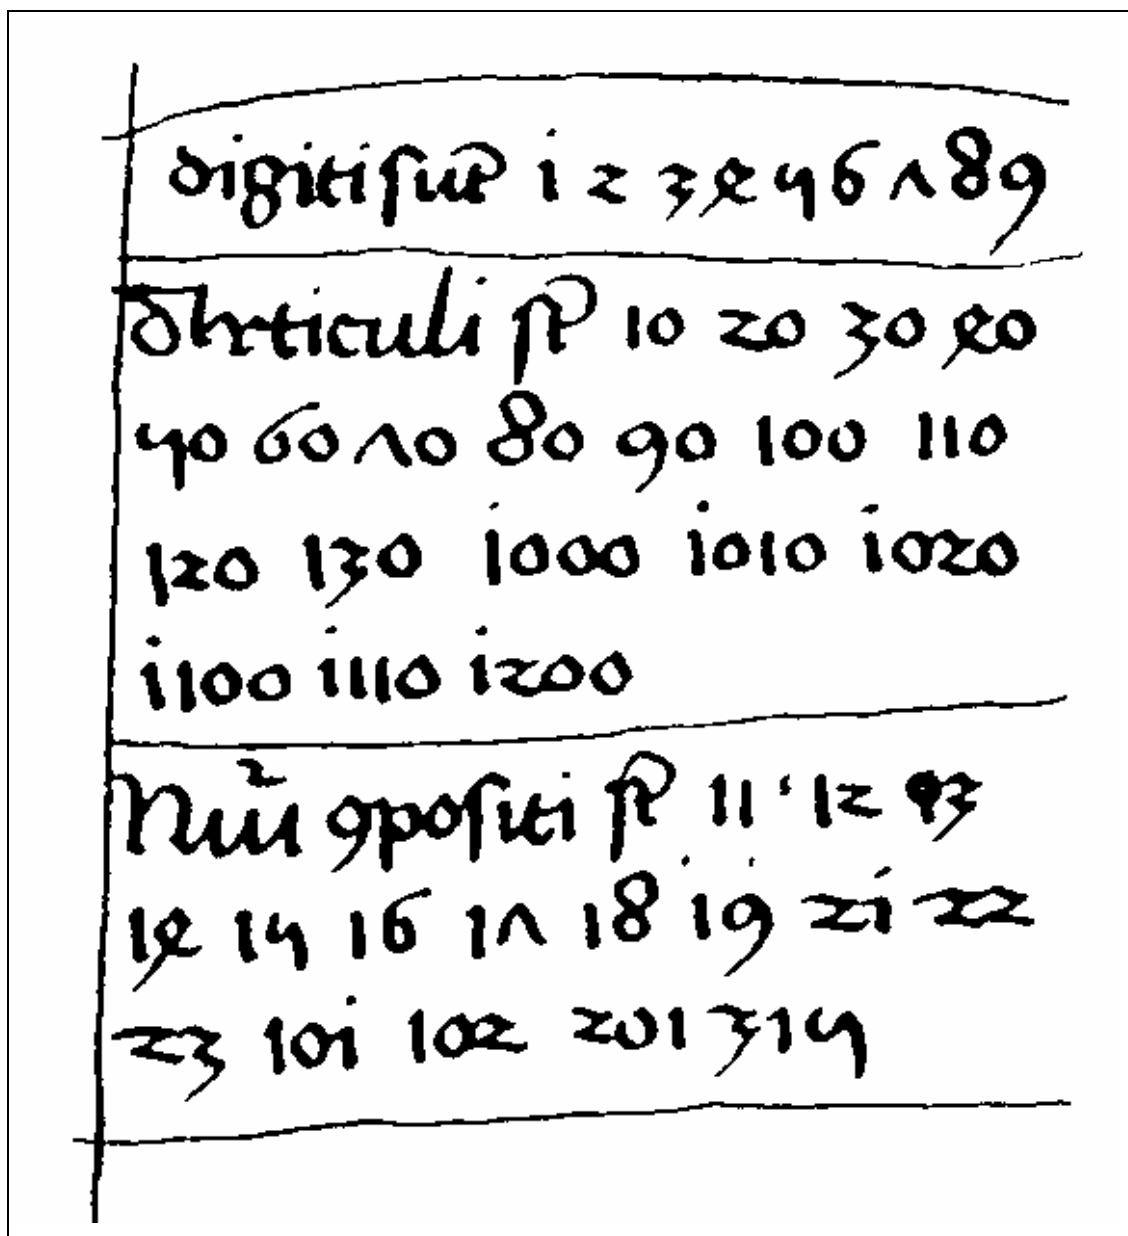 digiti sūt i 2 3 4 5 6 7 8 9
Articuli st 10 20 30 40
50 60 70 80 90 100 110
120 130 i000 i010 i020
i100 i110 i200
Nūi ꝯpositi st 11 · 12 13
14 15 16 17 18 i9 2i 22
23 10i 102 201 315